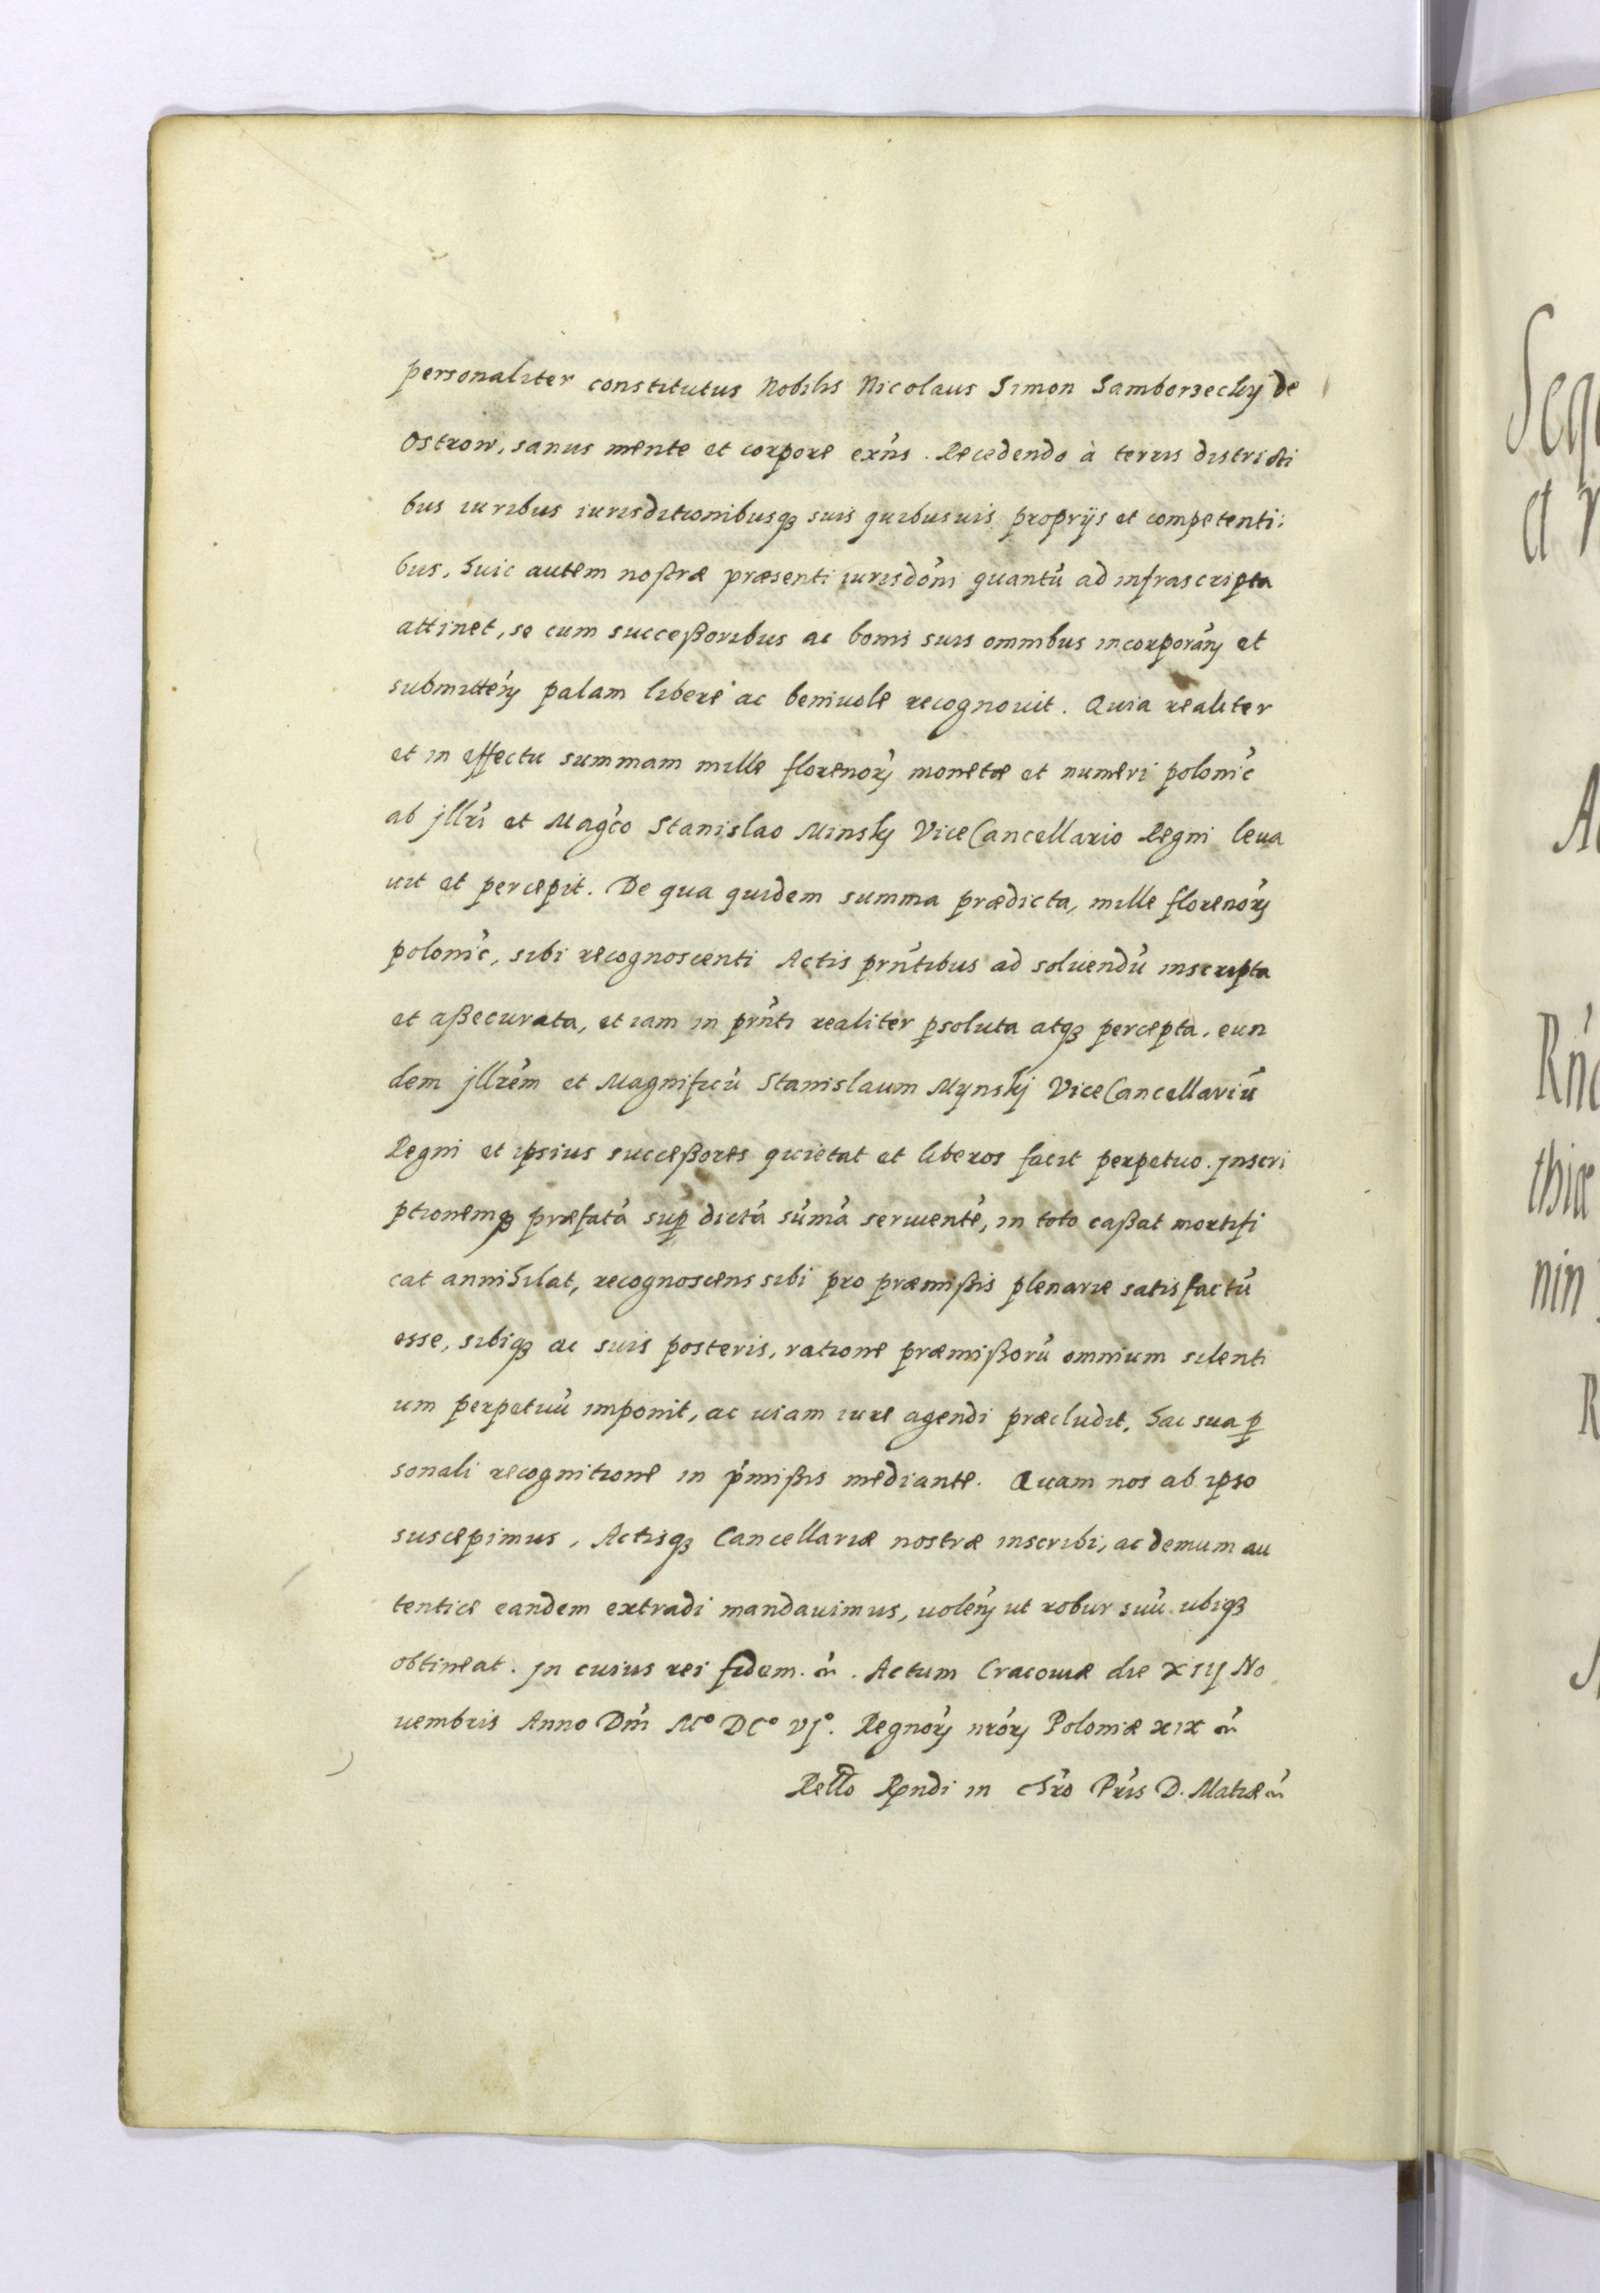 personaliter constitutus Nobilis Nicolaus Simon Samborzecky de
Ostrow, sanus mente et corpore exn̄s. Recedendo à terris districti
bus iuribus iurisditionibusqꝫ suis quibusuis proprijs et competenti:
bus, huic autem nostræ præsenti iurisdōni quantū ad infrascripta
attinet, se cum succeßoribus ac bonis suis omnibus incorporān̄ et
submittēn̄ palam liberè ac beniuole recognouit. Quia realiter
et in effectu summam mille florenorꝫ monetæ et numeri polonic̄
ab jllrī et Magc̄o Stanislao Minsky ViceCancellario Regni leua
uit et percepit. De qua quidem summa prædicta, mille florenorꝫ
polonic̄, sibi recognoscenti Actis prn̄tibus ad soluendū inscripta
et aßecurata, et iam in prn̄ti realiter ꝑsoluta atqꝫ percepta, eun
dem jllrēm et Magnificū Stanislaum Mynskj ViceCancellariū
Regni et ipsius succeßores quietat et liberos facit perpetuo. jnscri
ptionemqꝫ præfatā suꝑ dictā sūmā seruientē, in toto caßat mortifi
cat annihilat, recognoscens sibi pro præmißis plenarie satisfactū
esse, sibiqꝫ ac suis posteris, ratione præmißorū omnium silenti
um perpetuū imponit, ac uiam iure agendi præcludit, hac sua ꝑ
sonali recognitione in p̄mißis mediante. Quam nos ab ipso
suscepimus, Actisqꝫ Cancellariæ nostræ inscribi, ac demum au
tentice eandem extradi mandauimus, uolēn̄ ut robur suū ubiqꝫ
obtineat. jn cuius rei fidem. &c. Actum Cracouiæ die xiij No
uembris Anno Dn̄i Mº DCº vjº. Regnorꝫ nr̄orꝫ Poloniæ xix &c
Rell̄o Rn̄di in Chr̄o Pr̄is D. Matiæ &c
Seq
et